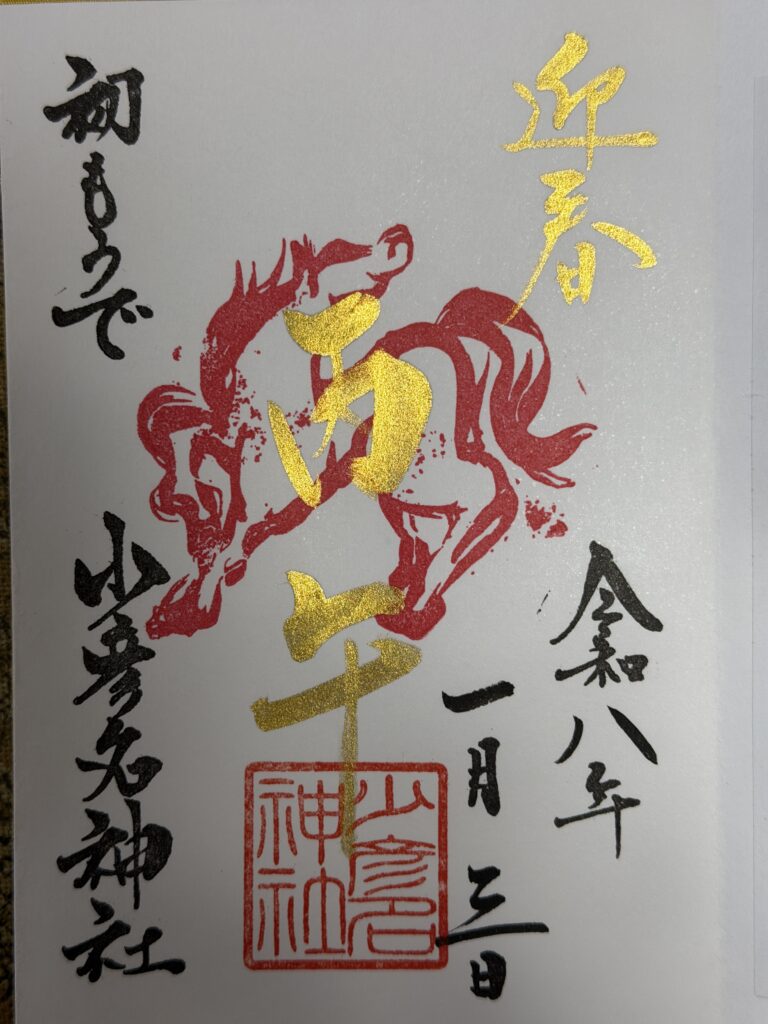 迎春
令和八年
一月三日
丙午
少彦名
神社
初もうで
少彦名神社